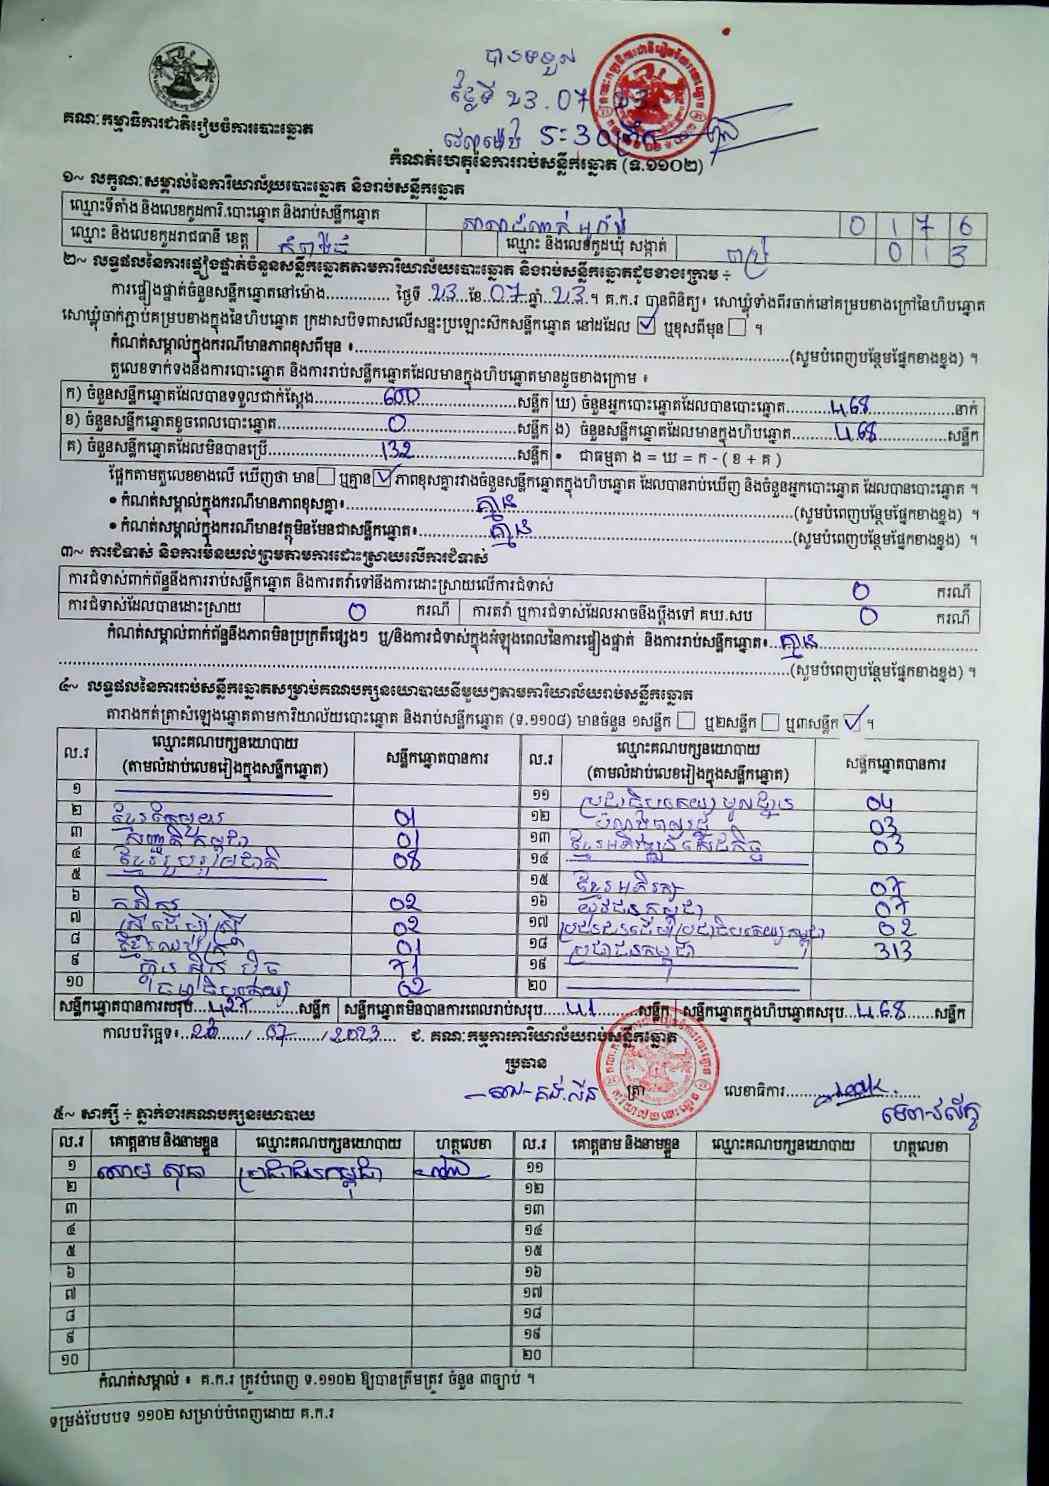 បានទទួល
ថ្ងៃទី 23.07
គណៈកម្មាធិការជាតិរៀបចំការបោះឆ្នោត
កំណត់ហេតុនៃការរាប់សន្លឹកឆ្នោត (ទ.១១០២)
១~ លក្ខណៈសម្គាល់នៃការិយាល័យបោះឆ្នោត និងរាប់សន្លឹកឆ្នោត
ឈ្មោះទីតាំង និងលេខកូដការិ.បោះឆ្នោត និងរាប់សន្លឹកឆ្នោត 0 1 7 6
ឈ្មោះ និងលេខកូដរាជធានី ខេត្ត ឈ្មោះ និងលេខកូដឃុំ សង្កាត់ 0 1 3
២~ លទ្ធផលនៃការផ្ទៀងផ្ទាត់ចំនួនសន្លឹកឆ្នោតតាមការិយាល័យបោះឆ្នោត និងរាប់សន្លឹកឆ្នោតដូចខាងក្រោម ÷
ការផ្ទៀងផ្ទាត់ចំនួនសន្លឹកឆ្នោតនៅម៉ោង.............. ថ្ងៃទី 23 ខែ 07 ឆ្នាំ 23 ។ គ.ក.រ បានពិនិត្យ៖ សោឃ្លុំទាំងពីរចាក់នៅគម្របខាងក្រៅនៃហិបឆ្នោត
សោឃ្លុំចាក់ភ្ជាប់គម្របខាងក្នុងនៃហិបឆ្នោត ក្រដាសបិទពាសលើសន្ទះប្រឡោះស៊កសន្លឹកឆ្នោត នៅដដែល ☑ ឬខុសពីមុន ☐ ។
កំណត់សម្គាល់ក្នុងករណីមានភាពខុសពីមុន ៖ ..............(សូមបំពេញបន្ថែមផ្នែកខាងខ្នង) ។
តួលេខទាក់ទងនឹងការបោះឆ្នោត និងការរាប់សន្លឹកឆ្នោតដែលមានក្នុងហិបឆ្នោតមានដូចខាងក្រោម ៖
ក) ចំនួនសន្លឹកឆ្នោតដែលបានទទួលជាក់ស្តែង 600 សន្លឹក ឃ) ចំនួនអ្នកបោះឆ្នោតដែលបានបោះឆ្នោត 468 នាក់
ខ) ចំនួនសន្លឹកឆ្នោតខូចពេលបោះឆ្នោត 0 សន្លឹក ង) ចំនួនសន្លឹកឆ្នោតដែលមានក្នុងហិបឆ្នោត 468 សន្លឹក
គ) ចំនួនសន្លឹកឆ្នោតដែលមិនបានប្រើ 132 សន្លឹក • ជាធម្មតា ង = ឃ = ក - ( ខ + គ )
ផ្អែកតាមតួលេខខាងលើ ឃើញថា មាន ☐ ឬគ្មាន ☑ ភាពខុសគ្នារវាងចំនួនសន្លឹកឆ្នោតក្នុងហិបឆ្នោត ដែលបានរាប់ឃើញ និងចំនួនអ្នកបោះឆ្នោត ដែលបានបោះឆ្នោត ។
• កំណត់សម្គាល់ក្នុងករណីមានភាពខុសគ្នា៖ គ្មាន (សូមបំពេញបន្ថែមផ្នែកខាងខ្នង) ។
• កំណត់សម្គាល់ក្នុងករណីមានវត្ថុមិនមែនជាសន្លឹកឆ្នោត៖ គ្មាន (សូមបំពេញបន្ថែមផ្នែកខាងខ្នង) ។
៣~ ការជំទាស់ និងការមិនយល់ព្រមតាមការដោះស្រាយលើការជំទាស់
ការជំទាស់ពាក់ព័ន្ធនឹងការរាប់សន្លឹកឆ្នោត និងការតវ៉ាទៅនឹងការដោះស្រាយលើការជំទាស់ 0 ករណី
ការជំទាស់ដែលបានដោះស្រាយ 0 ករណី ការតវ៉ា ឬការជំទាស់ដែលអាចនឹងប្តឹងទៅ គឃ.សប 0 ករណី
កំណត់សម្គាល់ពាក់ព័ន្ធនឹងភាពមិនប្រក្រតីផ្សេងៗ ឬ/និងការជំទាស់ក្នុងអំឡុងពេលនៃការផ្ទៀងផ្ទាត់ និងការរាប់សន្លឹកឆ្នោត៖ គ្មាន
(សូមបំពេញបន្ថែមផ្នែកខាងខ្នង) ។
៤~ លទ្ធផលនៃការរាប់សន្លឹកឆ្នោតសម្រាប់គណបក្សនយោបាយនីមួយៗតាមការិយាល័យរាប់សន្លឹកឆ្នោត
តារាងកត់ត្រាសំឡេងឆ្នោតតាមការិយាល័យបោះឆ្នោត និងរាប់សន្លឹកឆ្នោត (ទ.១១០៨) មានចំនួន ១សន្លឹក ☐ ឬ២សន្លឹក ☐ ឬ៣សន្លឹក ☑ ។
ល.រ ឈ្មោះគណបក្សនយោបាយ (តាមលំដាប់លេខរៀងក្នុងសន្លឹកឆ្នោត) សន្លឹកឆ្នោតបានការ ល.រ ឈ្មោះគណបក្សនយោបាយ (តាមលំដាប់លេខរៀងក្នុងសន្លឹកឆ្នោត) សន្លឹកឆ្នោតបានការ
១ ១១ ប្រជាធិបតេយ្យមូលដ្ឋាន 04
២ ខ្មែរតែមួយ 01 ១២ 03
៣ សញ្ជាតិកម្ពុជា 01 ១៣ ខ្មែរអភិវឌ្ឍន៍សេដ្ឋកិច្ច 03
៤ ខ្មែររួបរួមជាតិ 08 ១៤
៥ ១៥ ខ្មែរអភិរក្ស 07
៦ កសិករ 02 ១៦ យុវជនកម្ពុជា 07
៧ ស្ត្រីដើម្បីស្ត្រី 02 ១៧ ប្រជាជនដើម្បីប្រជាធិបតេយ្យកម្ពុជា 02
៨ 01 ១៨ ប្រជាជនកម្ពុជា 313
៩ ហ្វ៊ុនស៊ិនប៉ិច 71 ១៩
១០ 02 ២០
សន្លឹកឆ្នោតបានការសរុប 427 សន្លឹក សន្លឹកឆ្នោតមិនបានការពេលរាប់សរុប 41 សន្លឹក សន្លឹកឆ្នោតក្នុងហិបឆ្នោតសរុប 468 សន្លឹក
កាលបរិច្ឆេទ៖ 23 / 07 / 2023 ជ. គណៈកម្មការការិយាល័យរាប់សន្លឹកឆ្នោត
ប្រធាន
ត្រា លេខាធិការ
៥~ សាក្សី ÷ ភ្នាក់ងារគណបក្សនយោបាយ
ល.រ គោត្តនាម និងនាមខ្លួន ឈ្មោះគណបក្សនយោបាយ ហត្ថលេខា ល.រ គោត្តនាម និងនាមខ្លួន ឈ្មោះគណបក្សនយោបាយ ហត្ថលេខា
១ ប្រជាជនកម្ពុជា ១១
២ ១២
៣ ១៣
៤ ១៤
៥ ១៥
៦ ១៦
៧ ១៧
៨ ១៨
៩ ១៩
១០ ២០
កំណត់សម្គាល់ ៖ គ.ក.រ ត្រូវបំពេញ ទ.១១០២ ឱ្យបានត្រឹមត្រូវ ចំនួន ៣ច្បាប់ ។
ទម្រង់បែបបទ ១១០២ សម្រាប់បំពេញដោយ គ.ក.រ